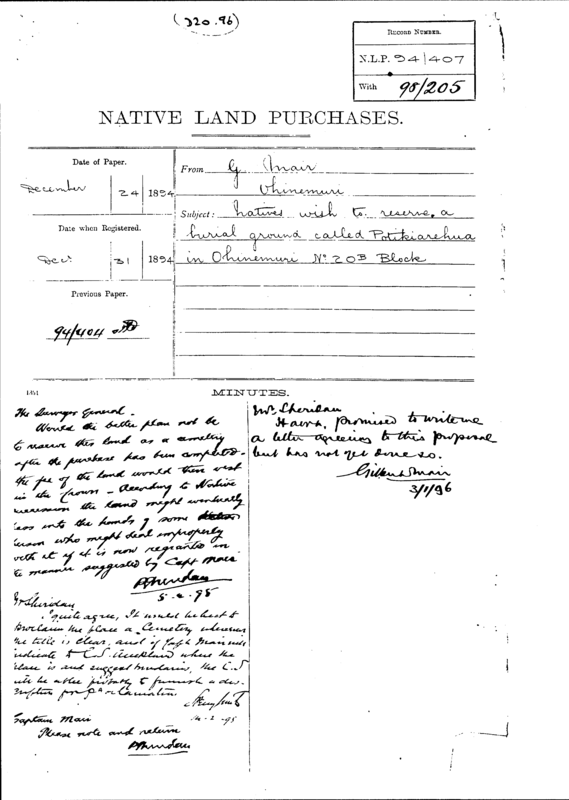 (320.96)
RECORD NUMBER.
N.L.P. 94/407
With 98/205
NATIVE LAND PURCHASES.
Date of Paper.
December 24 1894
Date when Registered.
Decr. 31 1894
Previous Paper.
94/404
From G Mair
Ohinemuri
Subject: Natives wish to reserve a
burial ground called Potikiarehua
in Ohinemuri No. 20B Block
1351
MINUTES.
The Surveyor General.
Would the better plan not be
to reserve this land as a cemetery
after the purchase has been completed.
the fee of the land would then vest
in the Crown - According to Native
succession the land might eventually
pass into the hands of some
person who might deal improperly
with it if it is now regranted in
the manner suggested by Capt Mair
PSheridan
5.2.95
Mr Sheridan
I quite agree, It would be best to
proclaim the place a Cemetery whenever
the title is clear, and if Capt Mair will
indicate to C.S. Auckland where the
place is and suggest boundaries, the C.S
will be able probably to furnish a des-
cription for Proclamation
14-2-95
Captain Mair
Please note and return
PSheridan
Mr. Sheridan
promised to write me
a letter agreeing to this proposal
but has not yet done so.
Gilbert Mair
3/1/96